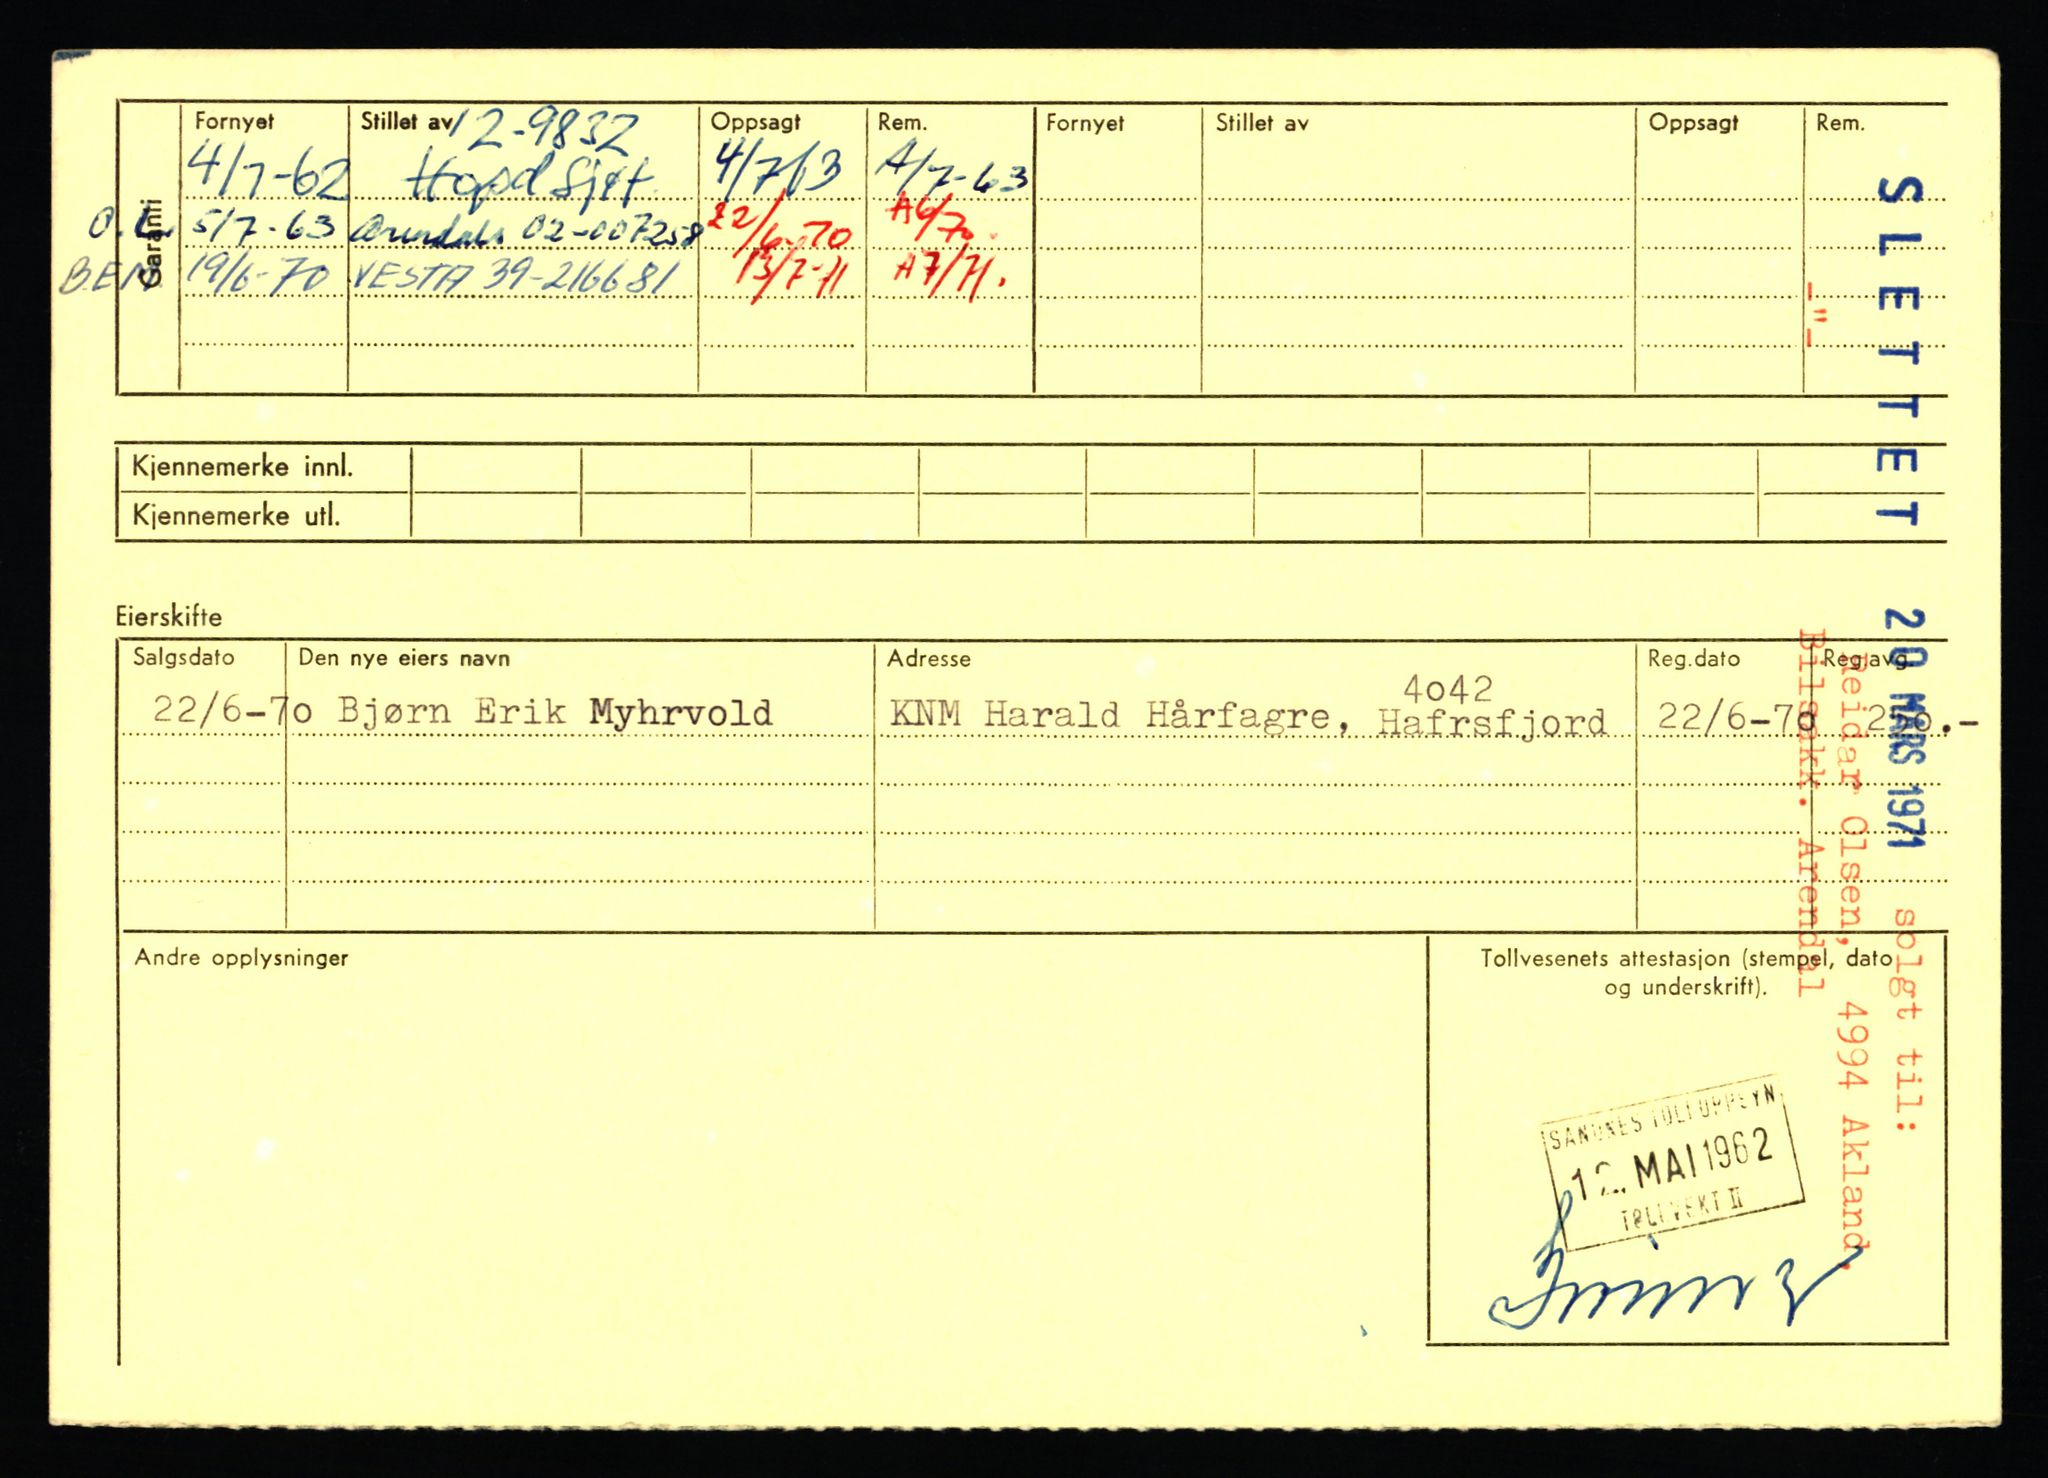 Garanti
Fornyet Stillet av Oppsagt Rem. Fornyet Stillet av Oppsagt Rem.
12-9832
4/7-62 4/7 63 A/7-63
5/7-63 Arendals 02-007258 22/6-70 A6/70.
BEM 19/6-70 VESTA 39-216681 13/7-71 A7/71.
Kjennemerke innl.
Kjennemerke utl.
Eierskifte
Salgsdato Den nye eiers navn Adresse Reg.dato Reg.avg.
4o42
22/6-7o Bjørn Erik Myhrvold KNM Harald Hårfagre, Hafrsfjord 22/6-7o
Andre opplysninger
Tollvesenets attestasjon (stempel, dato
og underskrift).
SANDNES TOLLOPPSYN
12. MAI 1962
TOLLVEKT II
SLETTET 20 MARS 1971 solgt til:
Reidar Olsen, 4994 Akland.
-"- Bilsakk. Arendal